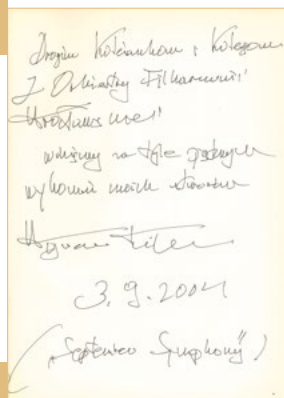 Drogim Koleżankom i Kolegom
z Orkiestry Filharmonii
Wrocławskiej
wdzięczny za tyle pięknych
wykonań moich utworów
Wojciech Kilar
3.9.2001
("September Symphony")